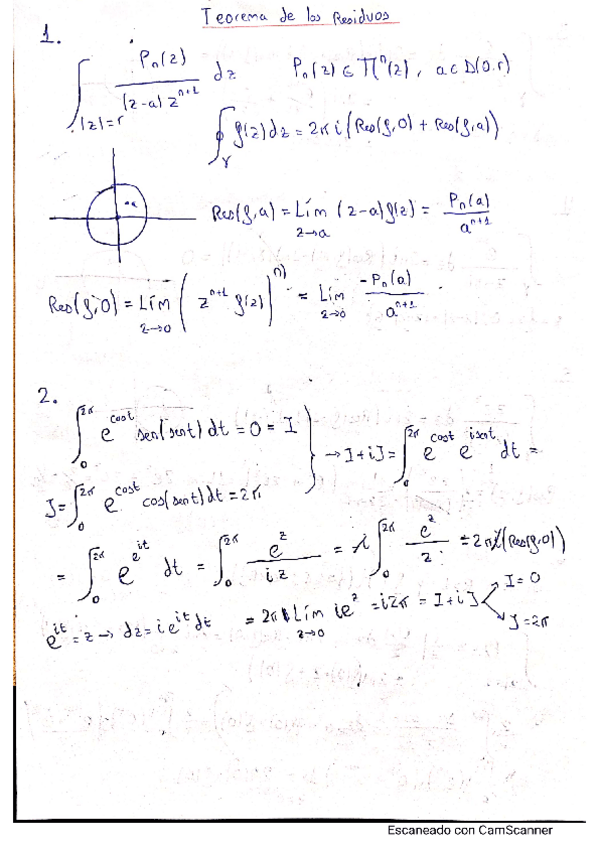 Teorema de los Residuos
1.
∫_{|z|=r} P_n(z) / ((z-a) z^{n+1}) dz    P_n(z) ∈ Π^n(z), a ∈ D(0,r)
∮_γ f(z)dz = 2πi (Res(f,0) + Res(f,a))
·a
Res(f,a) = Lím_{z→a} (z-a)f(z) = P_n(a) / a^{n+1}
Res(f,0) = Lím_{z→0} (z^{n+1} f(z))^{n)} = Lím_{z→0} -P_n(a) / a^{n+1}
2.
∫_0^{2π} e^{cost} sen(sent) dt = 0 = I
J = ∫_0^{2π} e^{cost} cos(sent) dt = 2π } → I+iJ = ∫_0^{2π} e^{cost} e^{isent} dt =
= ∫_0^{2π} e^{e^{it}} dt = ∫_0^{2π} e^z / iz = ∫_0^{2π} e^z / z = 2π (Res(f,0))
e^{it} = z → dz = ie^{it}dt    = 2π Lím_{z→0} ie^z = i2π = I+iJ
I = 0
J = 2π
Escaneado con CamScanner